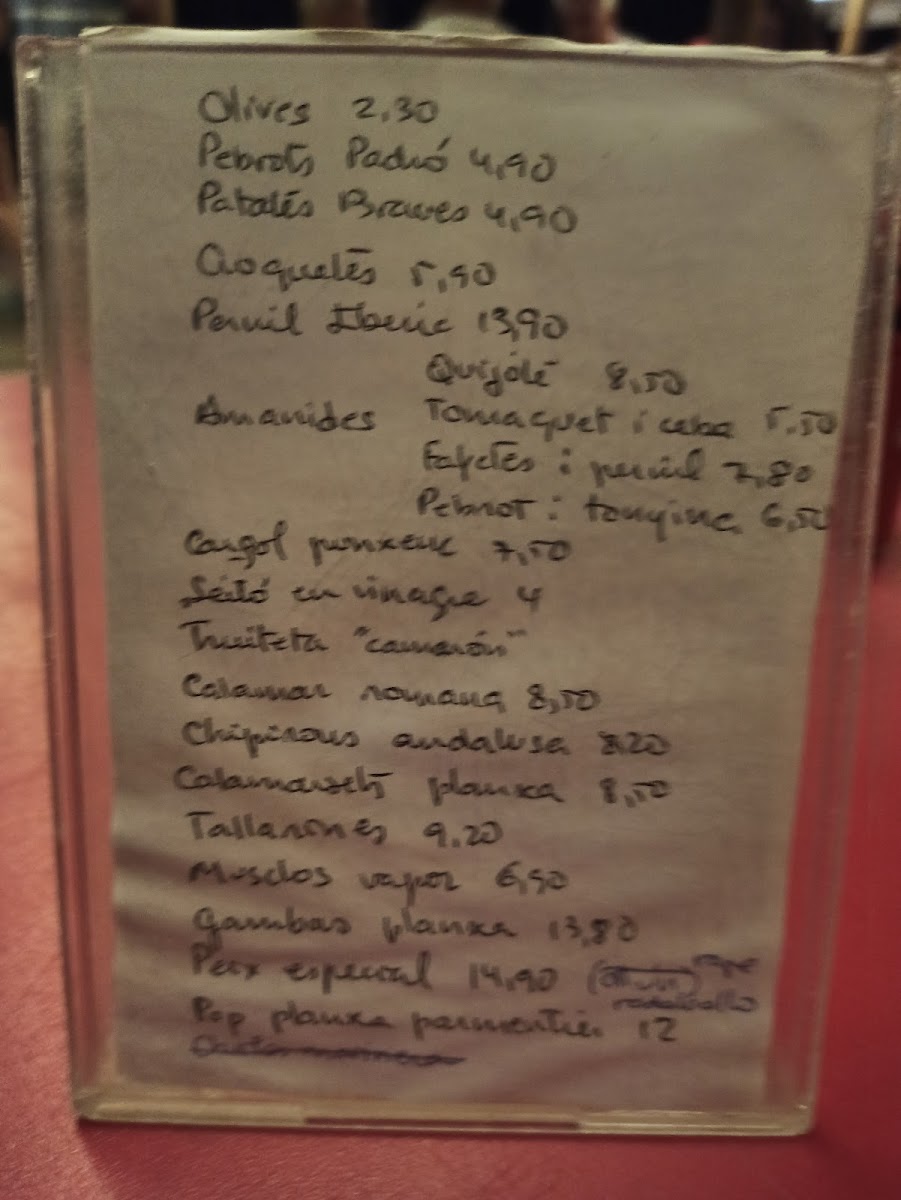 Olives 2,30
Pebrots Padró 4,90
Patates Braves 4,90
Croquetes 5,90
Pernil Iberic 13,90
Quijote 8,50
Amanides Tomaquet i ceba 5,50
Fabetes i pernil 7,80
Pebrot i tonyina 6,50
Cargol punxenc 7,50
Seitó en vinagre 4
Truiteta "camarón"
Calamar romana 8,50
Chipirons andalusa 8,20
Calamarsets planxa 8,50
Tallarines 9,20
Musclos vapor 6,90
Gambas planxa 13,80
Peix especial 14,90 rape
rodaballo
Pop planxa parmentier 12